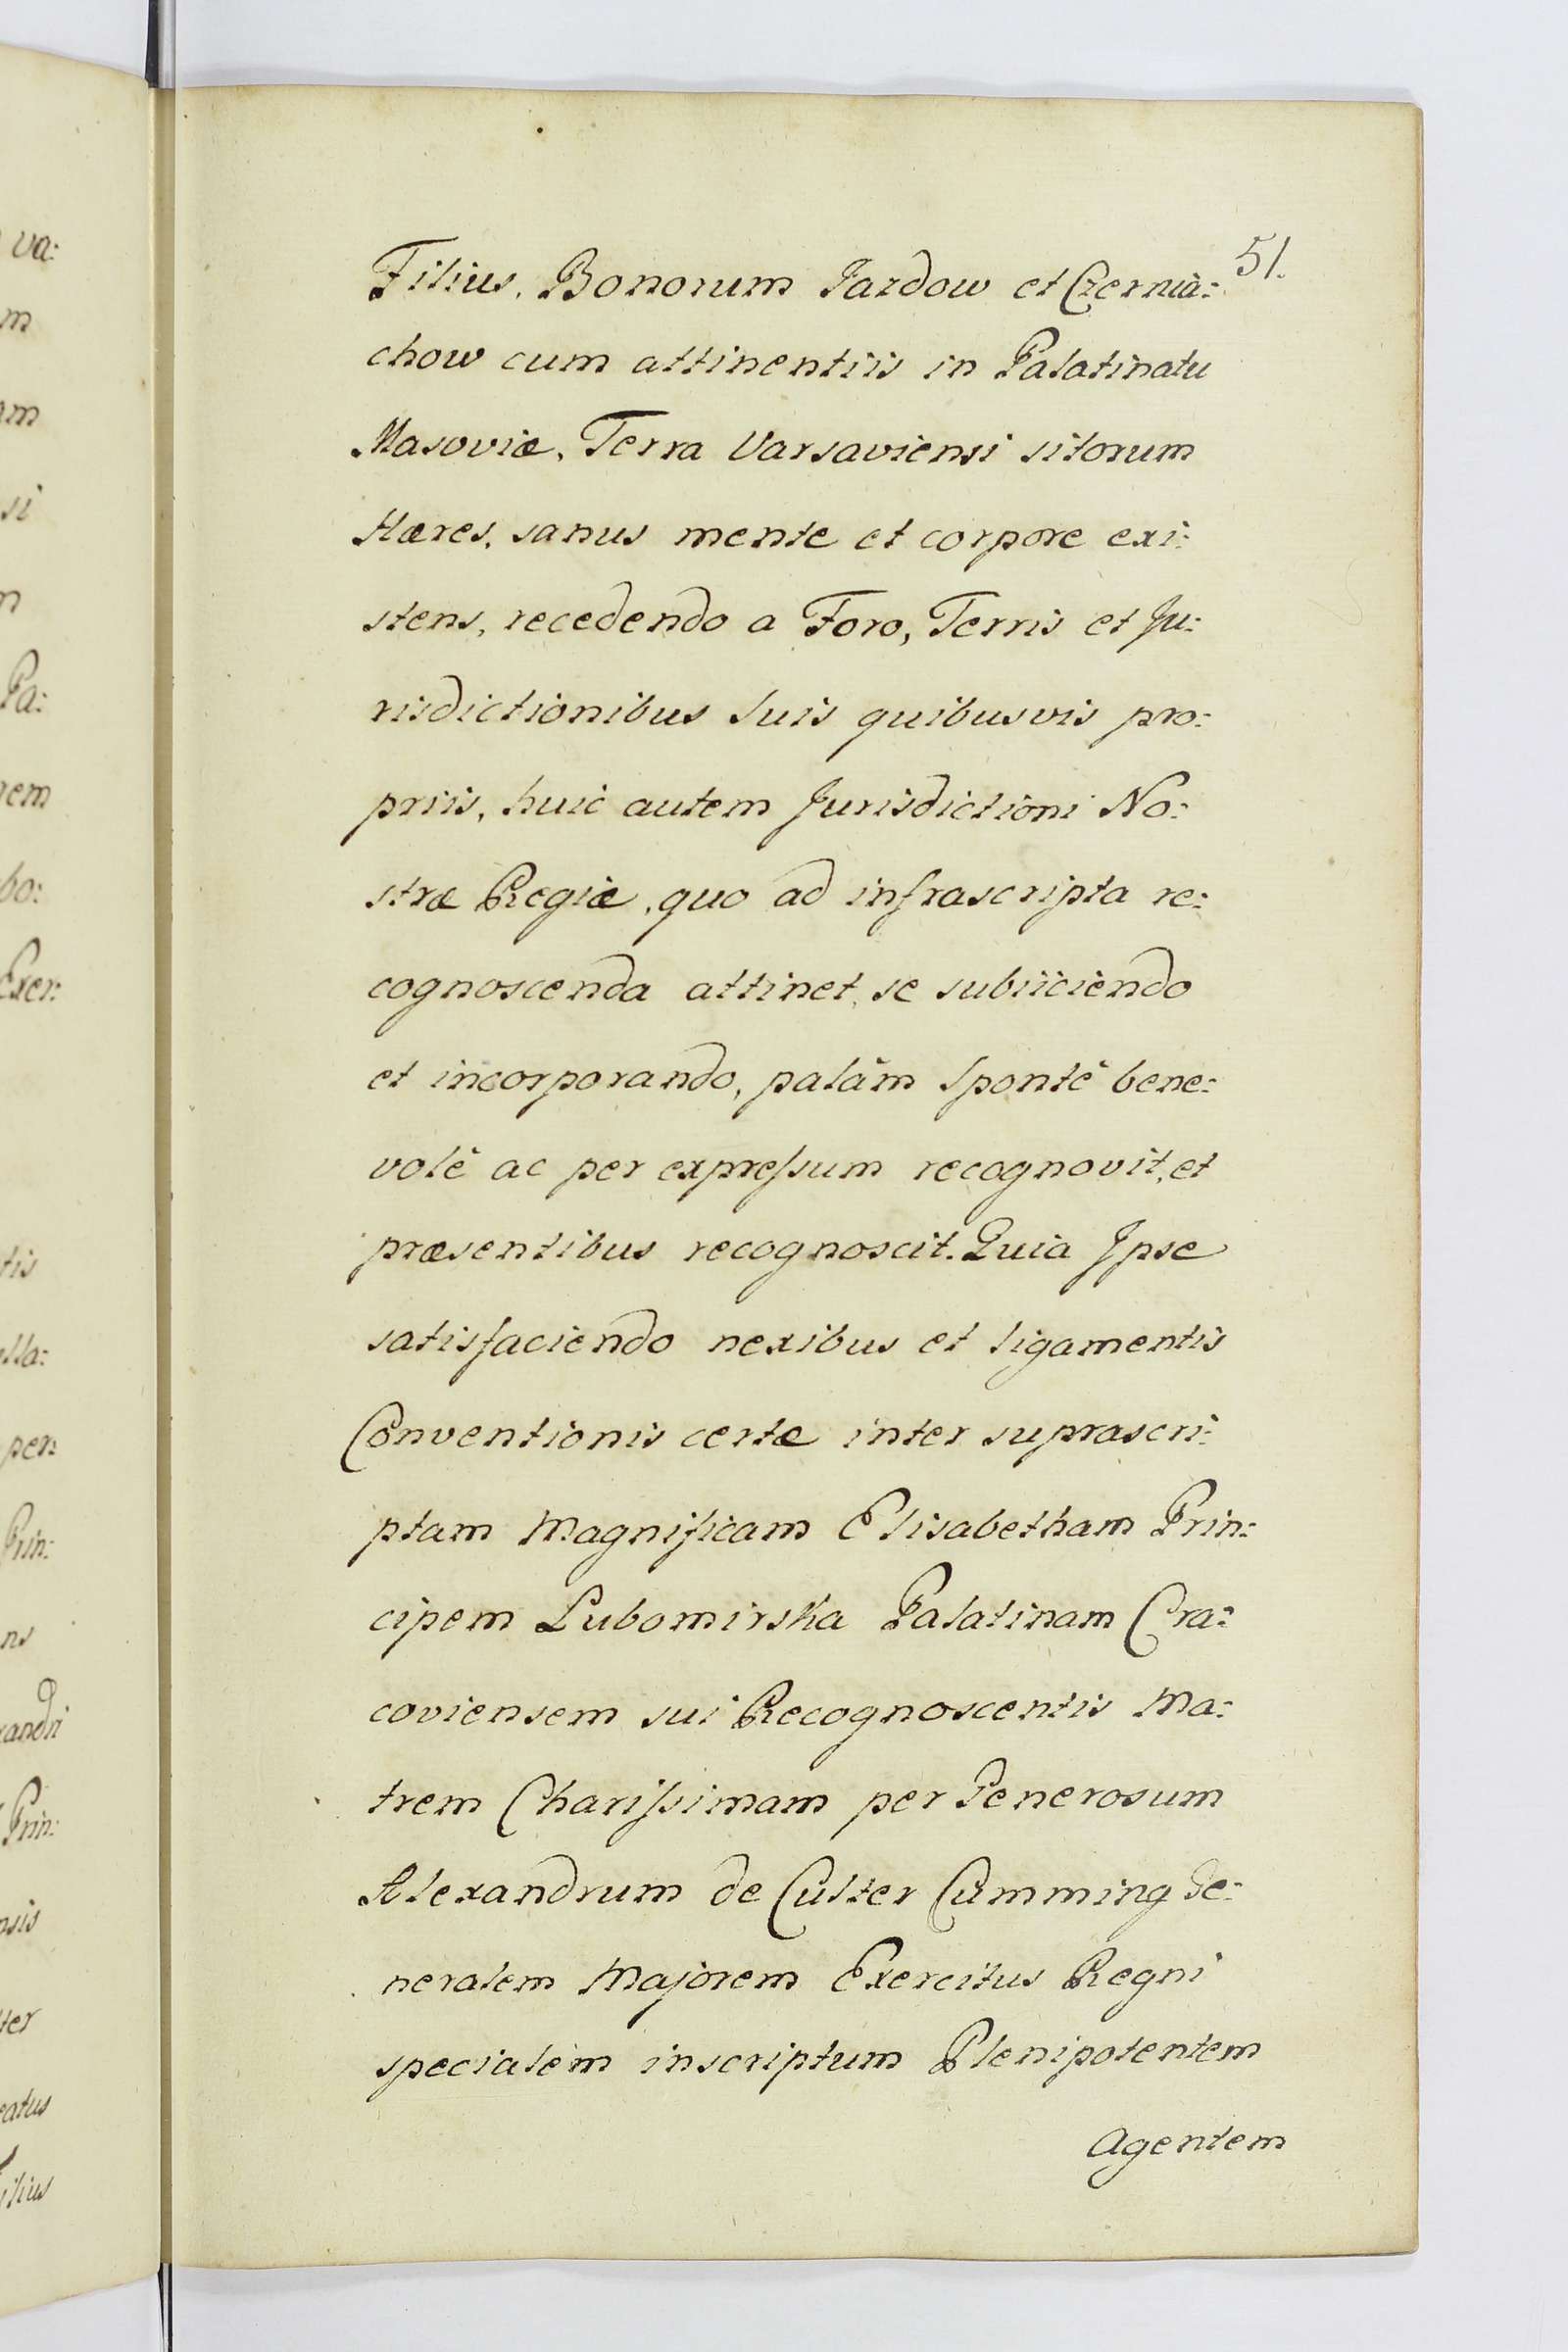 51.
Filius, Bonorum Jazdow et Czernia:
chow cum attinentiis in Palatinatu
Masoviæ, Terra Varsaviensi sitorum
Hæres, sanus mente et corpore exi:
stens, recedendo a Foro, Terris et Ju:
risdictionibus suis quibusvis pro:
priis, huic autem Jurisdictioni No:
stræ Regiæ, quo ad infrascripta re:
cognoscenda attinet, se subiiciendo
et incorporando, palàm spontè bene:
volè ac per expreſsum recognovit, et
præsentibus recognoscit. Quia Ipse
satisfaciendo nexibus et ligamentis
Conventionis certæ inter suprascri:
ptam Magnificam Elisabetham Prin:
cipem Lubomirska Palatinam Cra:
coviensem sui Recognoscentis Ma:
trem Chariſsimam per Generosum
Alexandrum de Culter Cumming Ge:
neralem Majorem Exercitus Regni
specialem inscriptum Plenipotentem
Agentem
va:
m
am
si
Pa:
bo:
Exer:
tis
per:
Prin:
Prin: